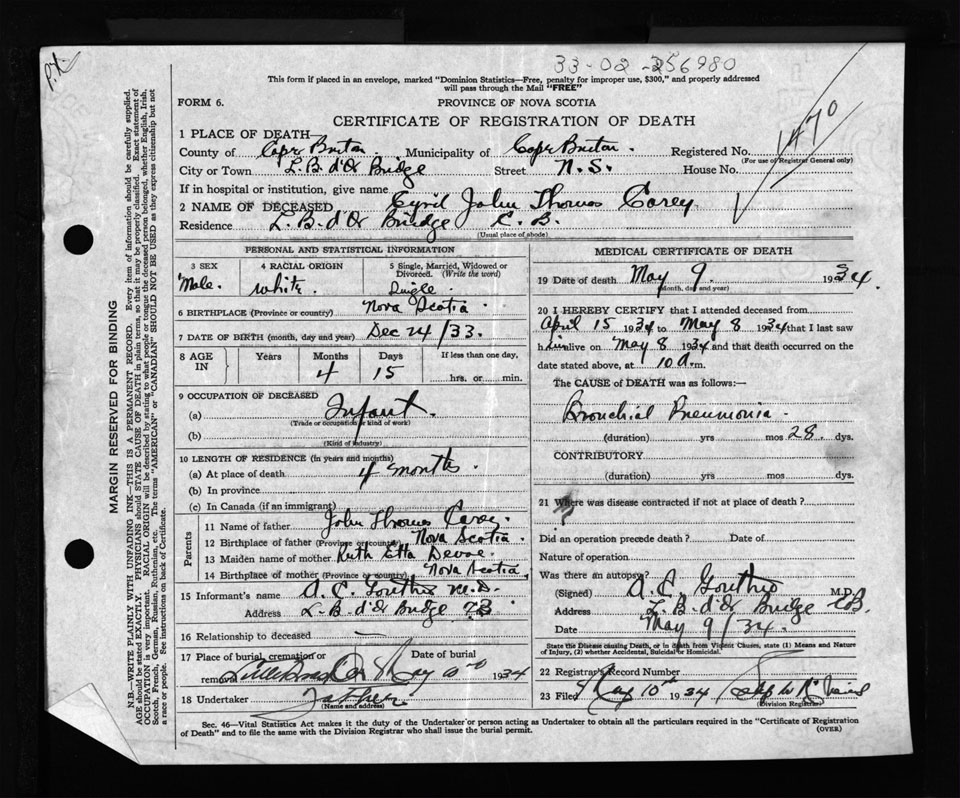 P.X
33-02-256980
This form if placed in an envelope, marked "Dominion Statistics—Free, penalty for improper use, $300," and properly addressed
will pass through the Mail "FREE"
FORM 6.
PROVINCE OF NOVA SCOTIA
CERTIFICATE OF REGISTRATION OF DEATH
1470
1 PLACE OF DEATH
County of Cape Breton. Municipality of Cape Breton. Registered No.
(For use of Registrar General only)
City or Town L.B. d'Or Bridge Street N.S. House No.
If in hospital or institution, give name
2 NAME OF DECEASED Cyril John Thomas Carey
Residence L.B. d'Or Bridge C.B.
(Usual place of abode)
PERSONAL AND STATISTICAL INFORMATION
3 SEX Male.
4 RACIAL ORIGIN white.
5 Single, Married, Widowed or Divorced. (Write the word) Single
6 BIRTHPLACE (Province or country) Nova Scotia
7 DATE OF BIRTH (month, day and year) Dec 24/33.
8 AGE IN Years Months 4 Days 15 If less than one day, hrs. or min.
9 OCCUPATION OF DECEASED
(a) Infant.
(Trade or occupation or kind of work)
(b)
(Kind of industry)
10 LENGTH OF RESIDENCE (in years and months)
(a) At place of death 4 months.
(b) In province
(c) In Canada (if an immigrant)
Parents
11 Name of father John Thomas Carey.
12 Birthplace of father (Province or country) Nova Scotia.
13 Maiden name of mother Ruth Etta Devoe.
14 Birthplace of mother (Province or country) Nova Scotia
15 Informant's name A. C. Gouthro M.D.
Address L.B. d'Or Bridge CB
16 Relationship to deceased —
17 Place of burial, cremation or removal Little Bras d'Or Date of burial May 10th 1934
18 Undertaker Father
(Name and address)
MEDICAL CERTIFICATE OF DEATH
19 Date of death May 9. 1934.
(Month, day and year)
20 I HEREBY CERTIFY that I attended deceased from
April 15 1934 to May 8 1934 that I last saw
him alive on May 8 1934 and that death occurred on the
date stated above, at 10 a.m.
The CAUSE of DEATH was as follows:—
Bronchial Pneumonia.
(duration) yrs mos 28. dys.
CONTRIBUTORY
(duration) yrs mos dys.
21 Where was disease contracted if not at place of death?
?
Did an operation precede death? Date of
Nature of operation
Was there an autopsy?
(Signed) A. C. Gouthro M.D.
Address L.B. d'Or Bridge CB.
Date May 9/34.
State the Disease causing Death, or in death from Violent Causes, state (1) Means and Nature
of Injury, (2) whether Accidental, Suicidal or Homicidal.
22 Registrar's Record Number
23 Filed May 10th 1934
(Division Registrar)
Sec. 46—Vital Statistics Act makes it the duty of the Undertaker or person acting as Undertaker to obtain all the particulars required in the "Certificate of Registration
of Death" and to file the same with the Division Registrar who shall issue the burial permit.
(OVER)
MARGIN RESERVED FOR BINDING
N.B.—WRITE PLAINLY WITH UNFADING INK—THIS IS A PERMANENT RECORD. Every item of information should be carefully supplied.
AGE should be stated EXACTLY. PHYSICIANS should STATE CAUSE OF DEATH in plain terms, so that it may be properly classified. Exact statement of
OCCUPATION is very important. RACIAL ORIGIN will be described by stating to what people or tongue the deceased person belonged, whether English, Irish,
Scotch, French, German, Russian, Ruthenian, etc. The terms "AMERICAN" or "CANADIAN" SHOULD NOT BE USED as they express citizenship but not
a race or people. See instructions on back of Certificate.